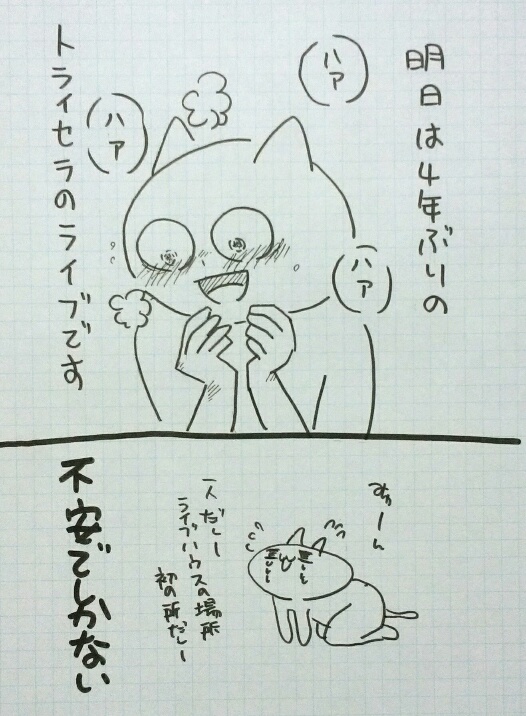 明日は4年ぶりの
(ハァ)
(ハァ)
(ハァ)
トライセラのライブです
みゃーん
一人だしー
ライブハウスの場所
初の所だしー
不安でしかない